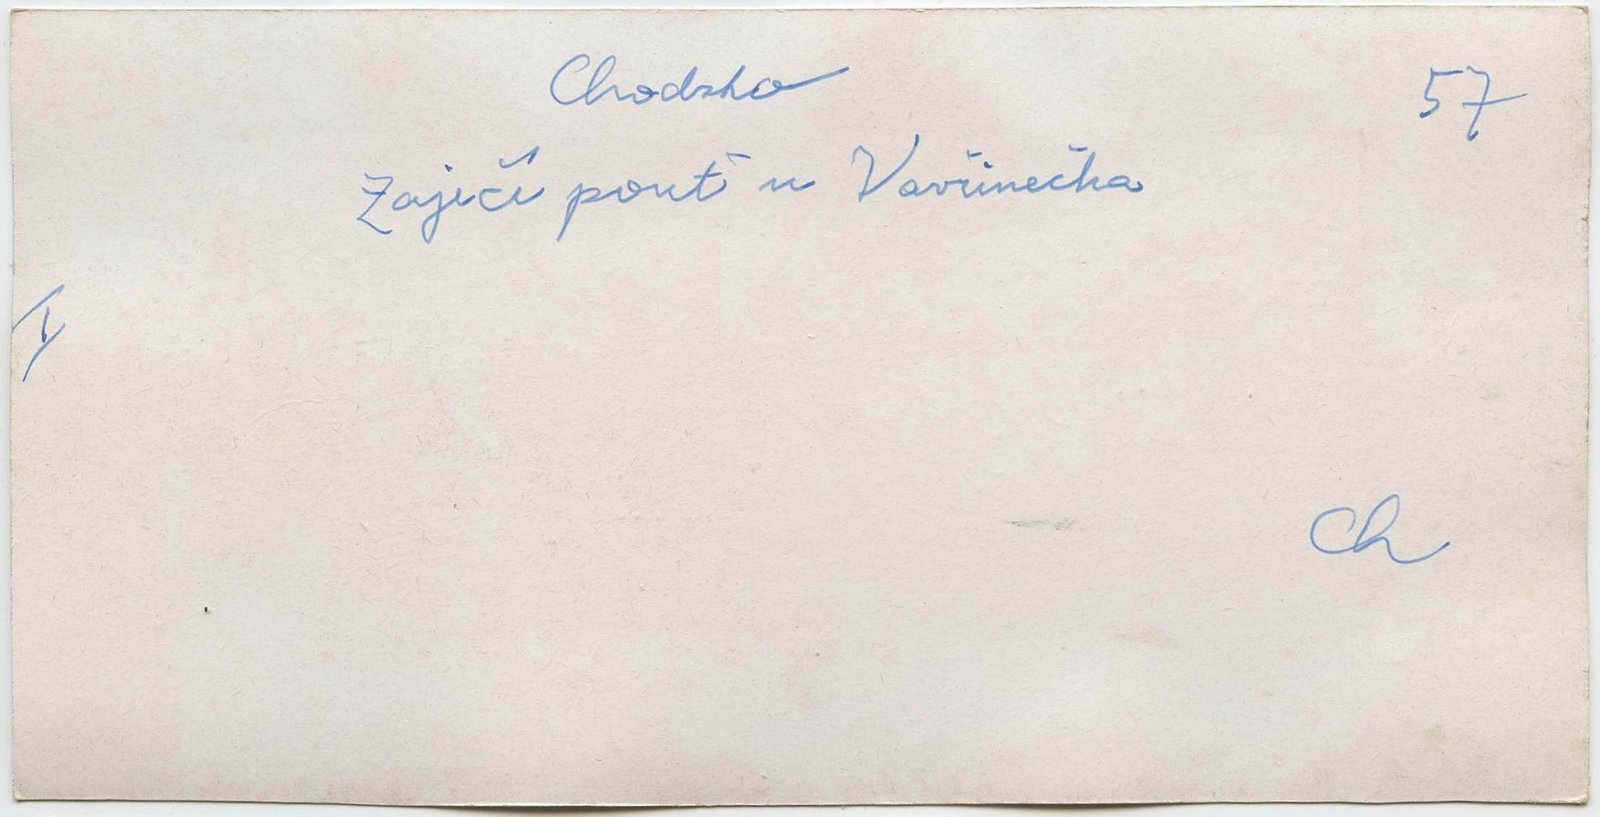 Chodsko
57
Zaječí pouť u Vavřinečka
Ch